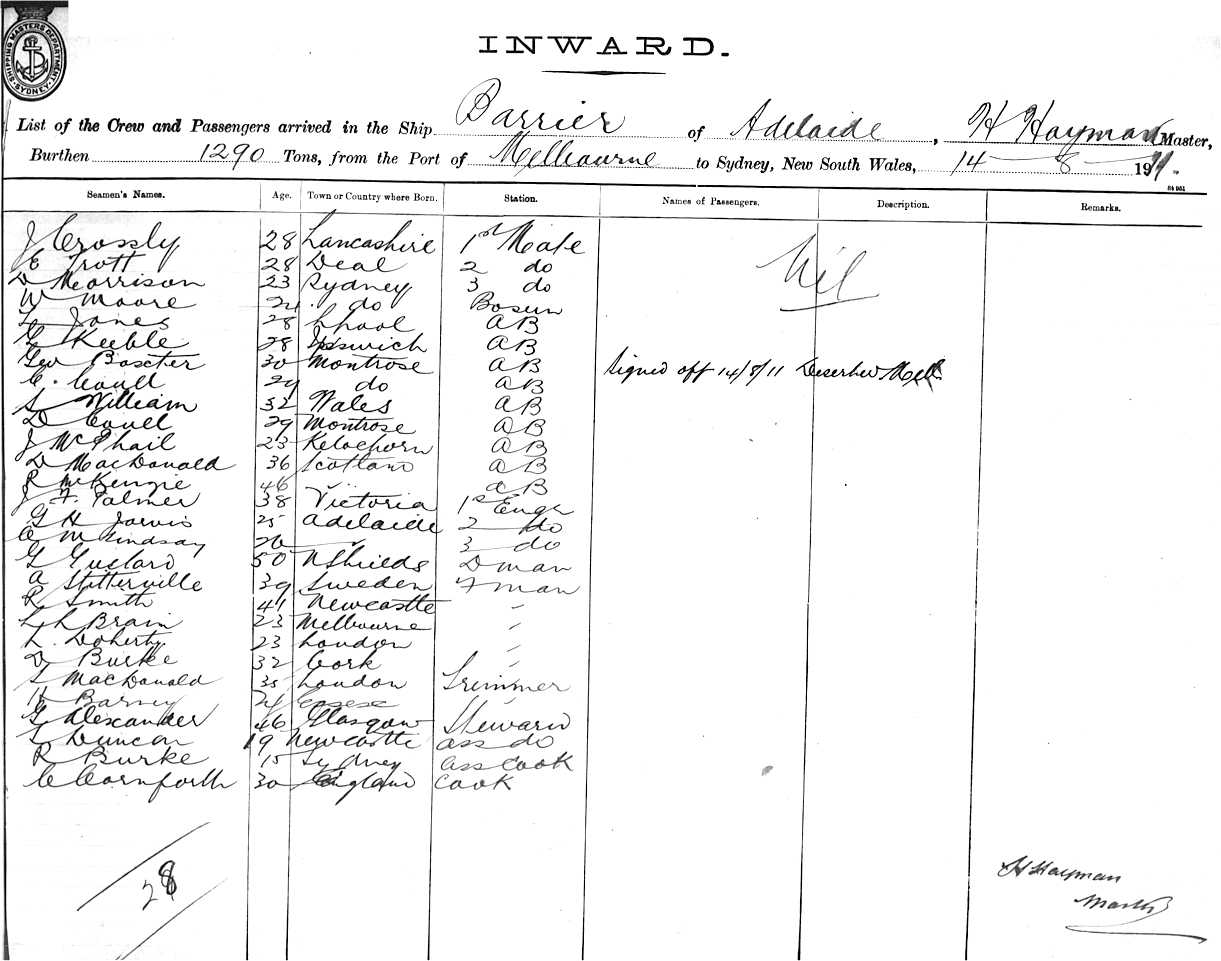 SHIPPING MASTERS DEPARTMENT SYDNEY
INWARD.
List of the Crew and Passengers arrived in the Ship Barrier of Adelaide, H Hayman Master,
Burthen 1290 Tons, from the Port of Melbourne to Sydney, New South Wales, 14 - 8 - 1911.
Seamen's Names. Age. Town or Country where Born. Station. Names of Passengers. Description. Remarks.
J Crossly 28 Lancashire 1st Mate Nil
E Trott 28 Deal 2 do
D Morrison 23 Sydney 3 do
W Moore 24 do Bosun
Jones 28 Lpool AB
G Keeble 28 Ipswich AB
Geo Baxter 30 Montrose AB Signed off 14/8/11 Deserted Melb
C. Coull 29 do AB
S William 32 Wales AB
D Coull 29 Montrose AB
J McPhail 23 AB
D MacDonald 36 Scotland AB
R McKenzie 46 " AB
J F. Palmer 38 Victoria 1st Engr
G H Jarvis 25 Adelaide 2 do
C M Lindsay 26 " 3 do
G Gustard 50 N Shields D man
A Stitterville 39 Sweden F man
R Smith 41 Newcastle "
L L Brain 23 Melbourne "
L. Doherty 23 London "
D Burke 32 Cork "
S MacDonald 35 London Trimmer
H Barney 24 Essex
G Alexander 46 Glasgow Steward
L Duncan 19 Newcastle ass do
R Burke 15 Sydney ass cook
C Cornforth 30 England cook
28
H Hayman
Master